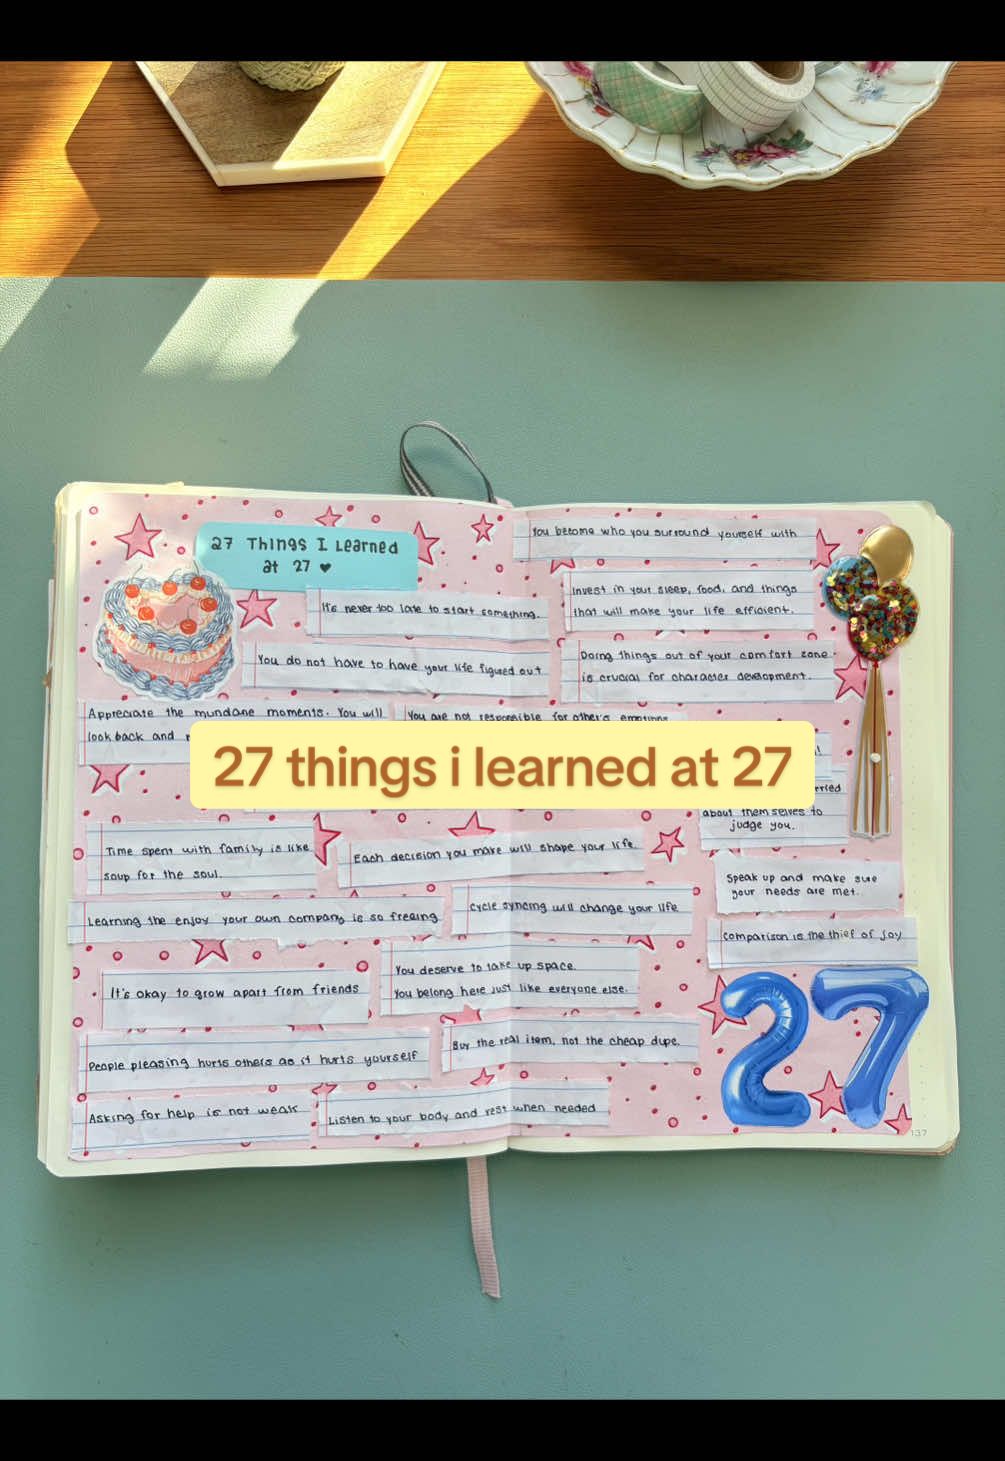 27 Things I Learned
at 27 ♥
It's never too late to start something.
You do not have to have your life figured out
Appreciate the mundane moments. You will
look back and
You are not responsible for other's emotions
You become who you surround yourself with
Invest in your sleep, food, and things
that will make your life efficient.
Doing things out of your comfort zone
is crucial for character development.
27 things i learned at 27
about themselves to
judge you.
Time spent with family is like
soup for the soul.
Each decision you make will shape your life.
Speak up and make sure
your needs are met.
Learning the enjoy your own company is so freeing
Cycle syncing will change your life
Comparison is the thief of joy
It's okay to grow apart from friends
You deserve to take up space.
You belong here just like everyone else.
People pleasing hurts others as it hurts yourself
Buy the real item, not the cheap dupe.
Asking for help is not weak
Listen to your body and rest when needed
27
137